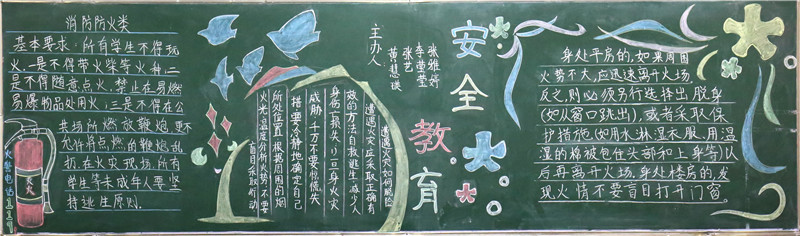 消防防火类
基本要求:所有学生不得玩
火,一是不得带火柴等火种,二
是不得随意点火,禁止在易燃
易爆物品处用火,三是不得在公
共场所燃放鞭炮,更不
允许将点燃的鞭炮乱
扔,在火灾现场,所有
学生等未成年人要坚
持逃生原则.
火警电话119
灭火
遭遇火灾如何脱险
遭遇火灾应采取正确有
效的方法自救逃生,减少人
身伤亡损失,一旦身火灾
威胁,千万不要惊慌失
措要冷静地确定自己
所处位置,根据周围的烟
火光,温度分析火势,不要
盲目采取行动
主办人
张雅婷
李莹莹
张艺
黄慧谈
安全教育
身处平房的,如果周围
火势不大,应迅速离开火场.
反之,则必须另行选择出脱身
(如从窗口跳出),或者采取保
护措施(如用水淋湿衣服.用温
湿的棉被包住头部和上身等)以
后再离开火场.身处楼房的,发
现火情不要盲目打开门窗.